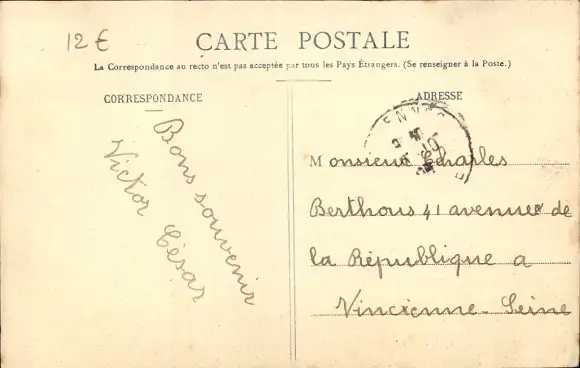 12€
CARTE POSTALE
La Correspondance au recto n'est pas acceptée par tous les Pays Étrangers. (Se renseigner à la Poste.)
CORRESPONDANCE
Bons souvenir
Victor César
ADRESSE
Monsieur Charles
Berthous 41 avenuer de
la République a
Vincienne-Seine